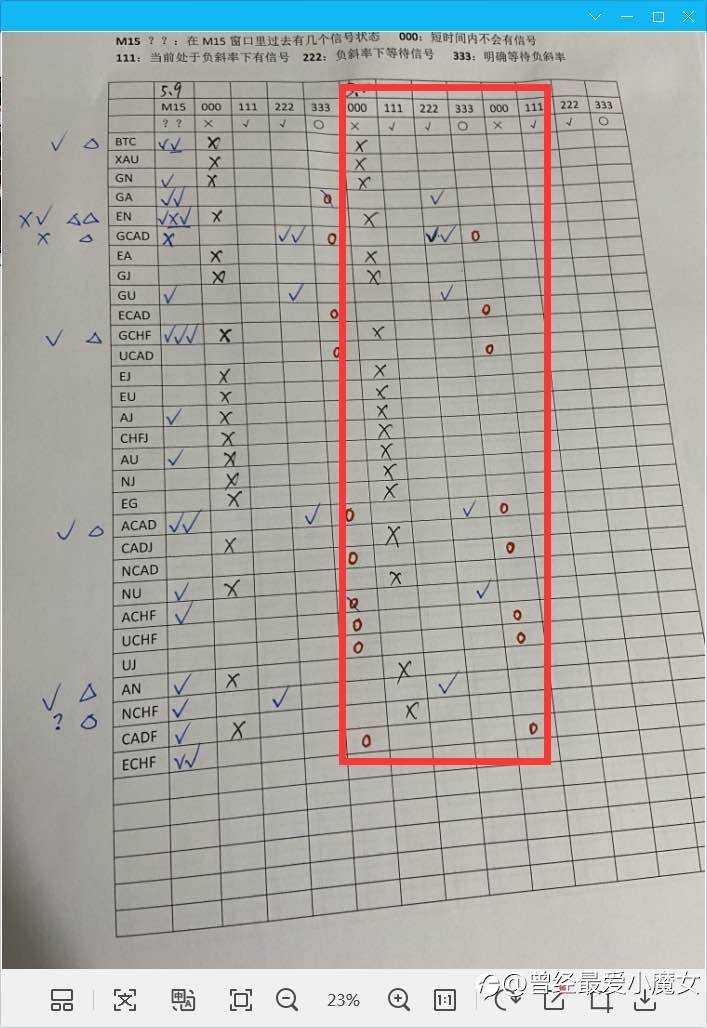 M15 ？？：在 M15 窗口里过去有几个信号状态 000：短时间内不会有信号
111：当前处于负斜率下有信号 222：负斜率下等待信号 333：明确等待负斜率
5.9
M15 000 111 222 333 000 111 222 333 000 111 222 333
？？ × √ √ ○ × √ √ ○ × √ √ ○
√ △ BTC √√ X X
XAU X X
GN √ X X
GA √√ √
X√ △△ EN √X√ X X
X △ GCAD X √√ O √√ O
EA X X
GJ X X
GU √ √ √
ECAD O O
√ △ GCHF √√√ X X
UCAD O O
EJ X X
EU X X
AJ √ X X
CHFJ X X
AU √ X X
NJ X X
EG X X
√ △ ACAD √√ √ O √ O
CADJ X X
NCAD O O
NU √ X X
ACHF √ √
UCHF O O
UJ O O
√ △ AN √ X X
? △ NCHF √ √ √
CADF √ X X
ECHF √√ O O
23%
1:1
@曾经最爱小魔女